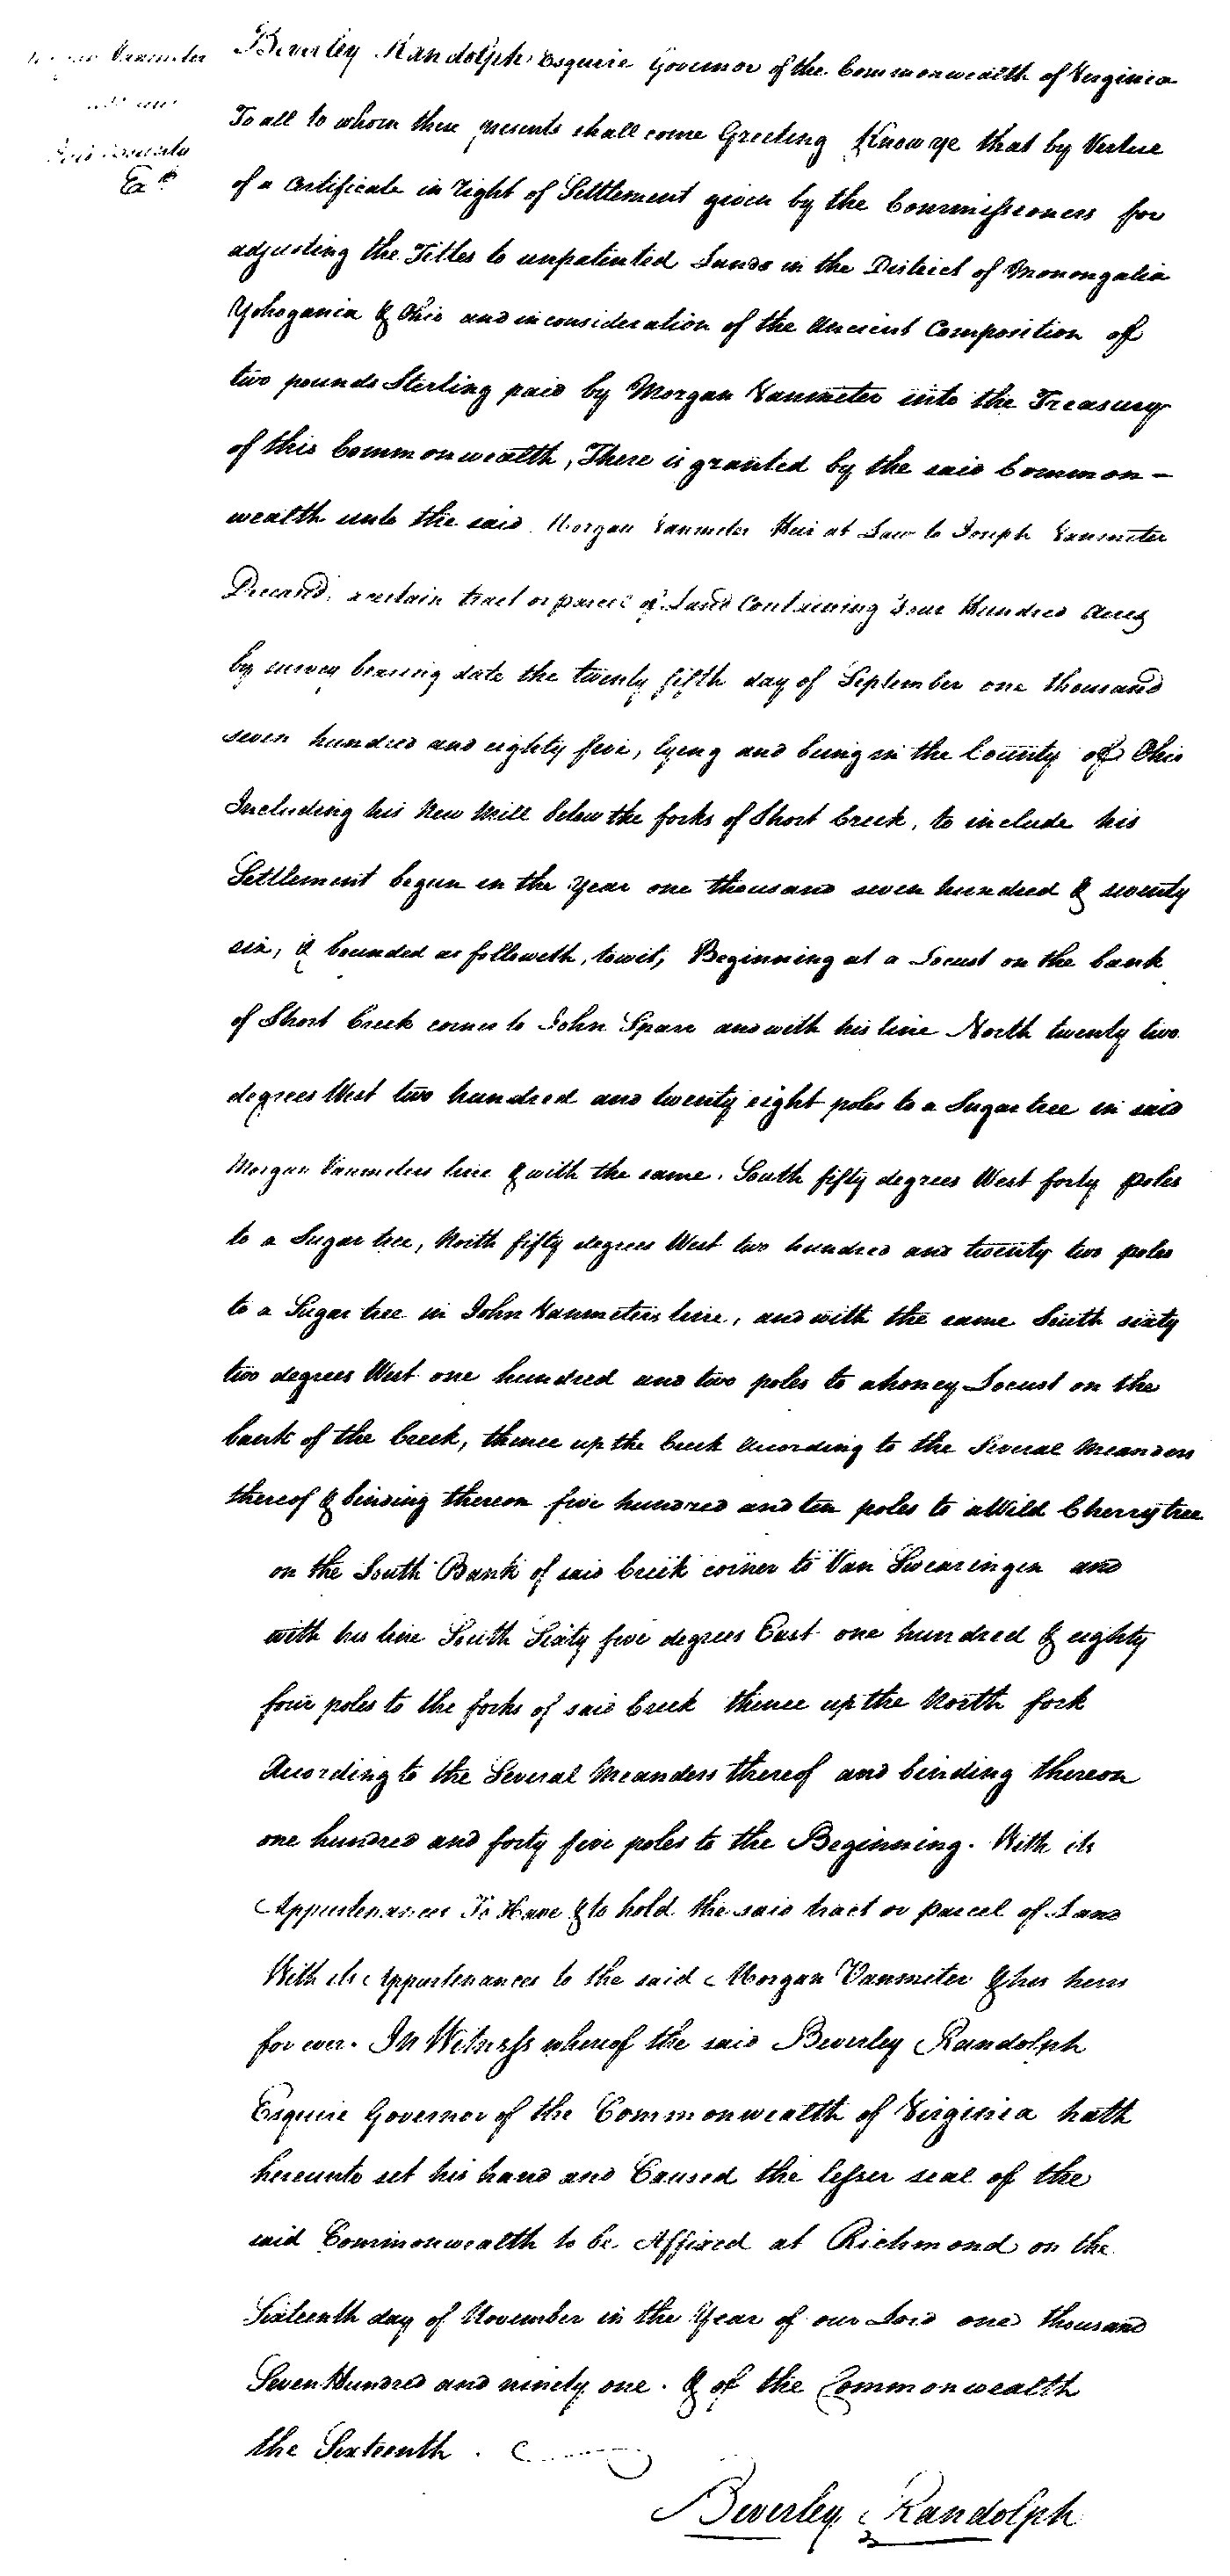 Vanmeter
Exd
Beverley Randolph, Esquire Governor of the Commonwealth of Virginia
To all to whom these presents shall come Greeting Know ye that by Vertue
of a Certificate in right of Settlement given by the Commissioners for
adjusting the Titles to unpatented Lands in the District of Monongalia
Yohogania & Ohio and in consideration of the Ancient Composition of
two pounds Sterling paid by Morgan Vanmeter into the Treasury
of this Commonwealth, There is granted by the said Common-
wealth unto the said Morgan Vanmeter Heir at Law to Joseph Vanmeter
Deceasd, a certain tract or parcel of Land Containing Four Hundred Acres
by survey bearing date the twenty fifth day of September one thousand
seven hundred and eighty five, lying and being in the County of Ohio
Including his New Mill below the forks of Short Creek, to include his
Settlement begun in the Year one thousand seven hundred & seventy
six, & bounded as followeth, towit, Beginning at a Locust on the bank
of Short Creek corner to John Sparr and with his line North twenty two
degrees West two hundred and twenty eight poles to a Sugar tree in said
Morgan Vanmeters line & with the same. South fifty degrees West forty poles
to a Sugar tree, North fifty degrees West two hundred and twenty two poles
to a Sugar tree in John Vanmeters line, and with the same South sixty
two degrees West one hundred and two poles to a honey Locust on the
bank of the Creek, thence up the Creek According to the Several Meanders
thereof & binding thereon five hundred and ten poles to a Wild Cherry tree
on the South Bank of said Creek corner to Van Swearingen and
with his line South Sixty five degrees East one hundred & eighty
four poles to the forks of said Creek thence up the North fork
According to the Several Meanders thereof and binding thereon
one hundred and forty five poles to the Beginning. With its
Appurtenances To Have & to hold the said tract or parcel of Land
With its Appurtenances to the said Morgan Vanmeter & his heirs
for ever. In Witness whereof the said Beverley Randolph
Esquire Governor of the Commonwealth of Virginia hath
hereunto set his hand and Caused the lesser seal of the
said Commonwealth to be Affixed at Richmond on the
Sixteenth day of November in the Year of our Lord one thousand
Seven Hundred and ninety one. & of the Commonwealth
the Sixteenth.
Beverley Randolph